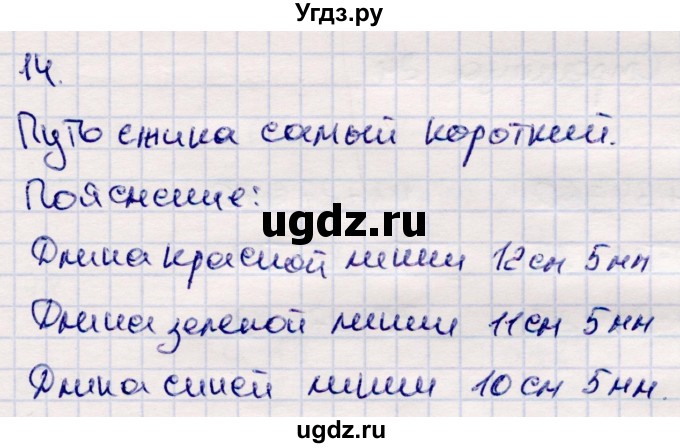 Угдз.ру
14.
Путь ежика самый короткий.
Пояснение:
ugdz.ru
Длина красной линии 12см 5мм
Длина зеленой линии 11см 5мм
Длина синей линии 10см 5мм.
ugdz.ru